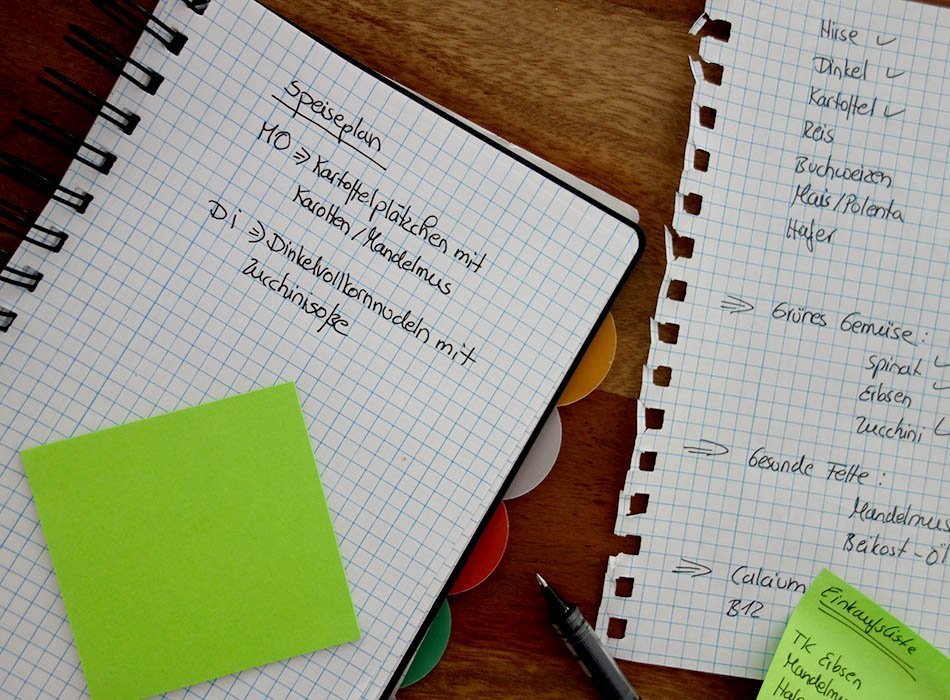 Speiseplan
MO => Kartoffelplätzchen mit
Karotten / Mandelmus
Di => Dinkelvollkornnudeln mit
Zucchinisoße
Hirse ✓
Dinkel ✓
Kartoffel ✓
Reis
Buchweizen
Mais/Polenta
Hafer
=> Grünes Gemüse:
Spinat ✓
Erbsen
Zucchini ✓
=> Gesunde Fette:
Mandelmus
Beikost-Öl
=> Calcium
B12
Einkaufsliste
TK Erbsen